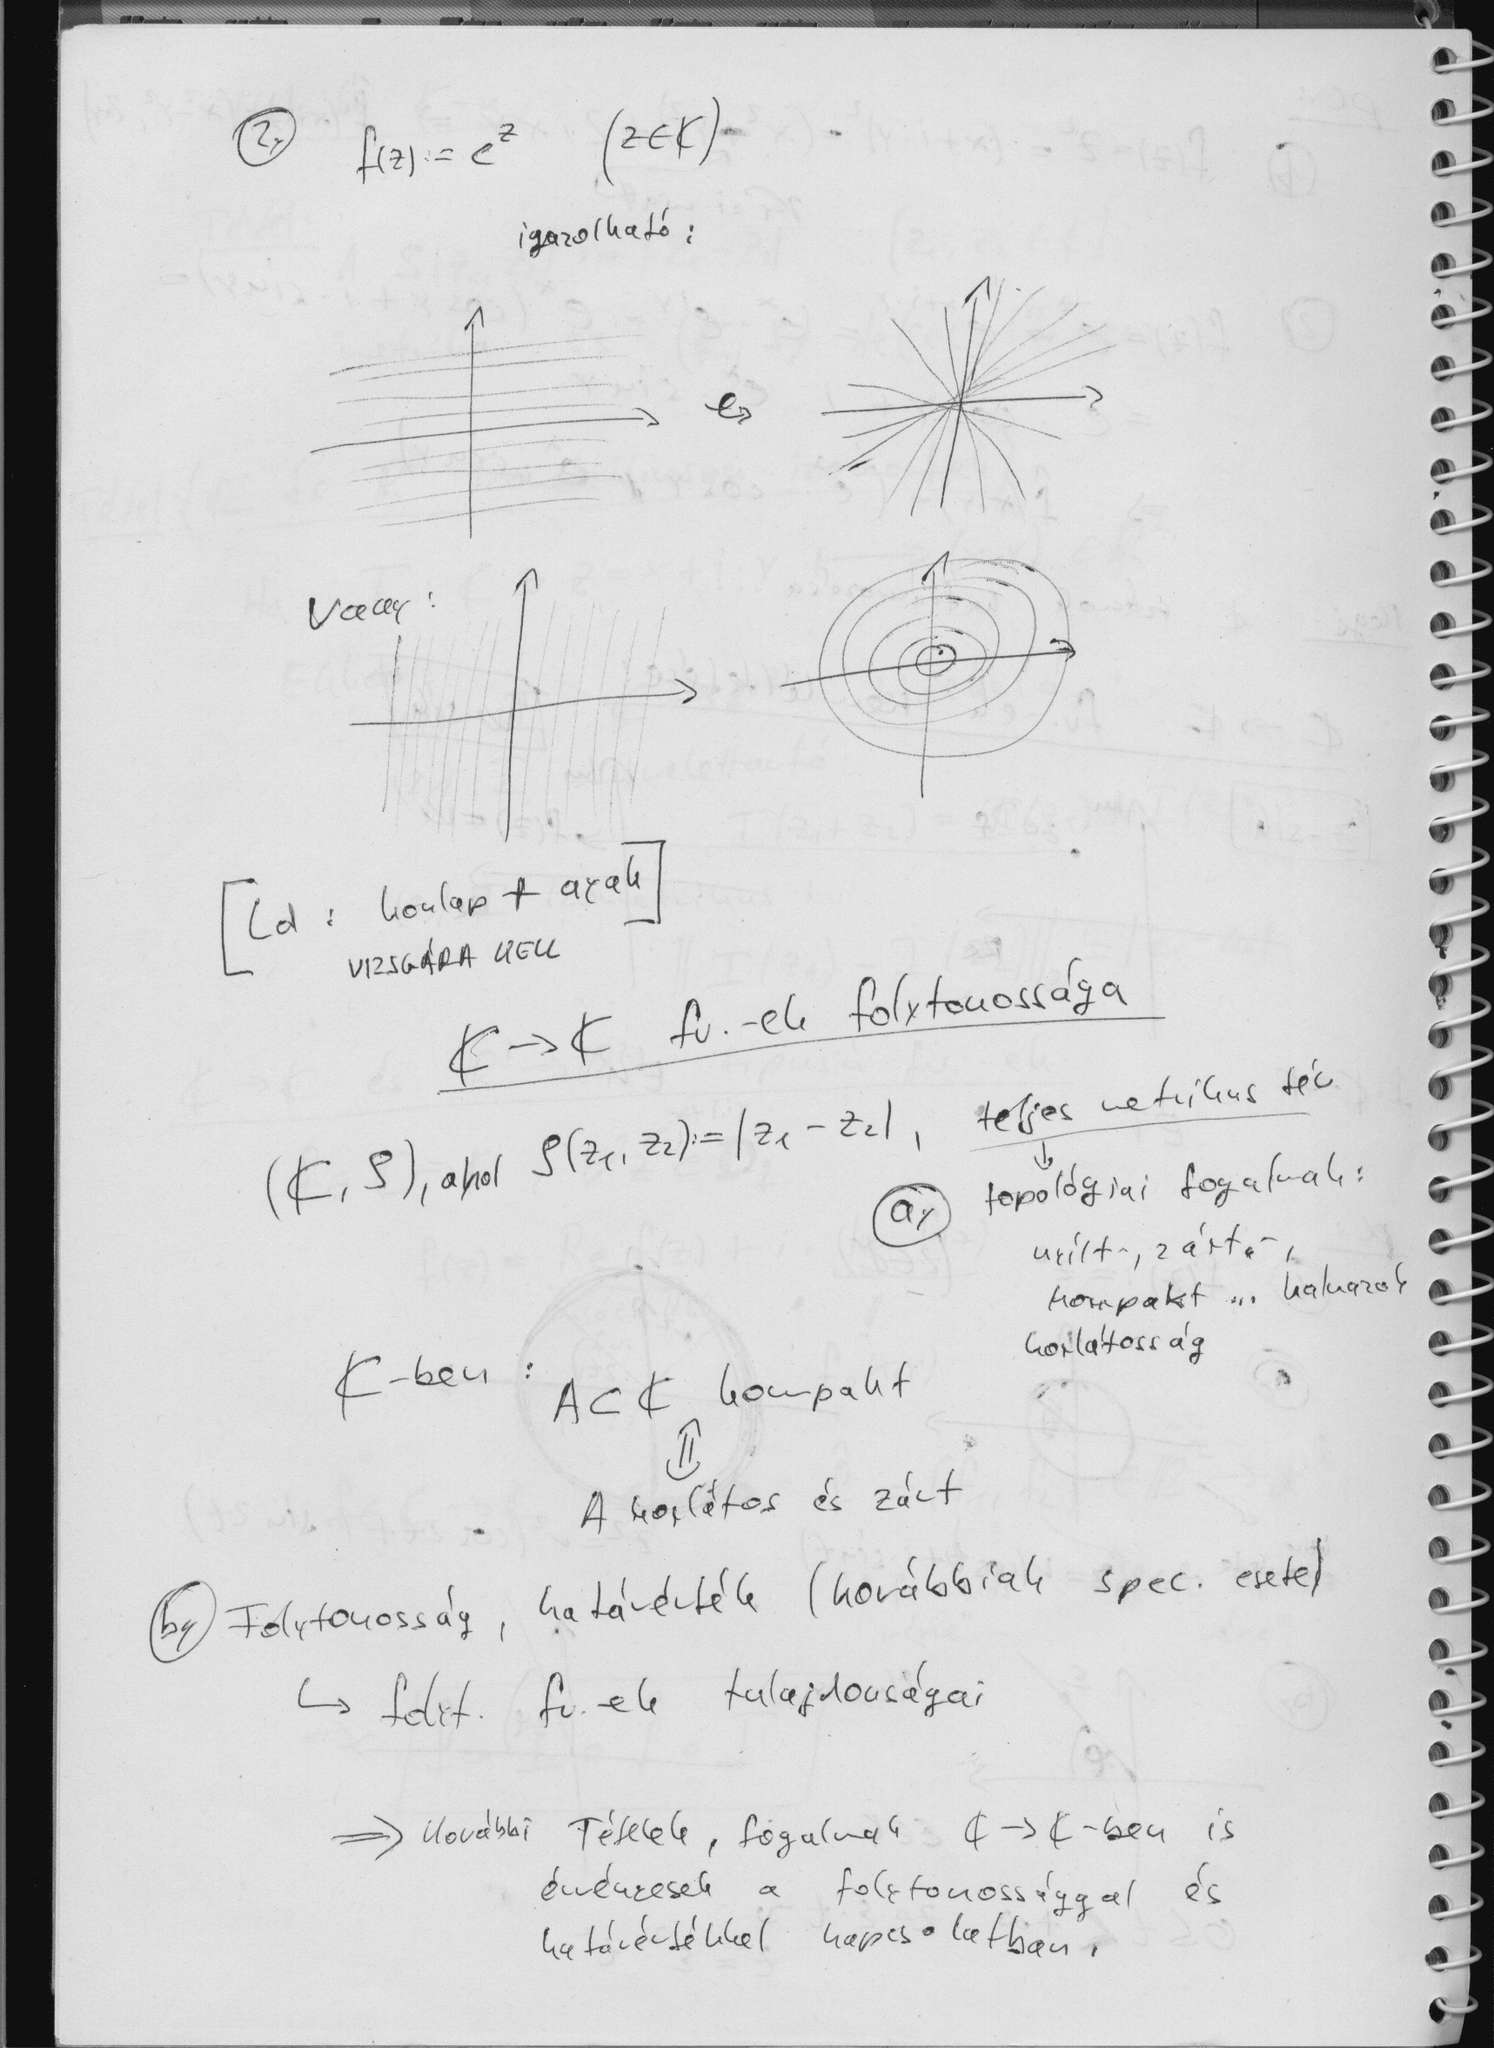 2, f(z) := e^z (z ∈ ℂ)
igazolható:
Vagy:
[Ld: honlap + anyag]
VIZSGÁRA KELL
ℂ → ℂ fv.-ek folytonossága
(ℂ, ρ), ahol ρ(z₁, z₂) := |z₁ - z₂|, teljes metrikus tér
↓
a, topológiai fogalmak:
nyílt-, zárt-,
kompakt ... halmazok
korlátosság
ℂ-ben: A ⊂ ℂ kompakt
⇕
A korlátos és zárt
b, Folytonosság, határérték (korábbiak spec. esete)
↳ folyt. fv.-ek tulajdonságai
⇒ Korábbi Tételek, fogalmak ℂ → ℂ-ben is
érvényesek a folytonossággal és
határértékkel kapcsolatban.